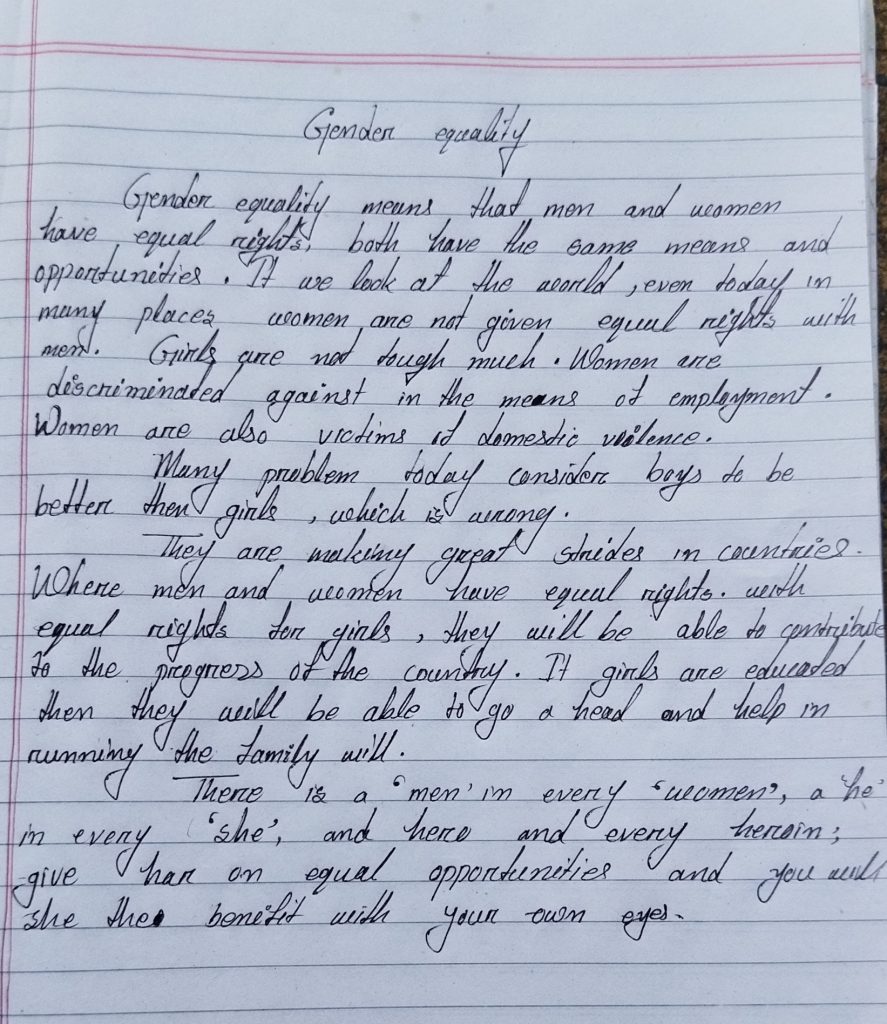 Gender equality
Gender equality means that men and women
have equal rights, both have the same means and
opportunities. If we look at the world, even today in
many places women are not given equal rights with
men. Girls are not tough much. Women are
discriminated against in the means of employment.
Women are also victims of domestic voilence.
Many problem today consider boys to be
better then girls, which is wrong.
They are making great strides in countries.
Where men and women have equal rights. with
equal rights for girls, they will be able to contribute
to the progress of the country. If girls are educated
then they will be able to go a head and help in
running the family will.
There is a 'men' in every 'women', a 'he'
in every 'she', and hero and every heroin;
give har on equal opportunities and you will
she the benefit with your own eyes.